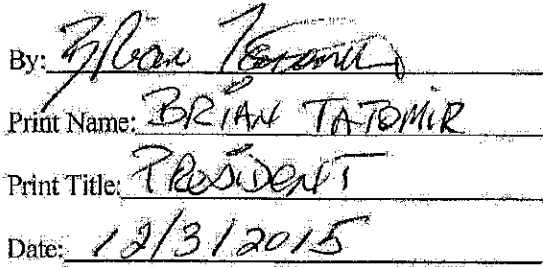 By: Brian Tatomir
Print Name: BRIAN TATOMIR
Print Title: PRESIDENT
Date: 12/3/2015